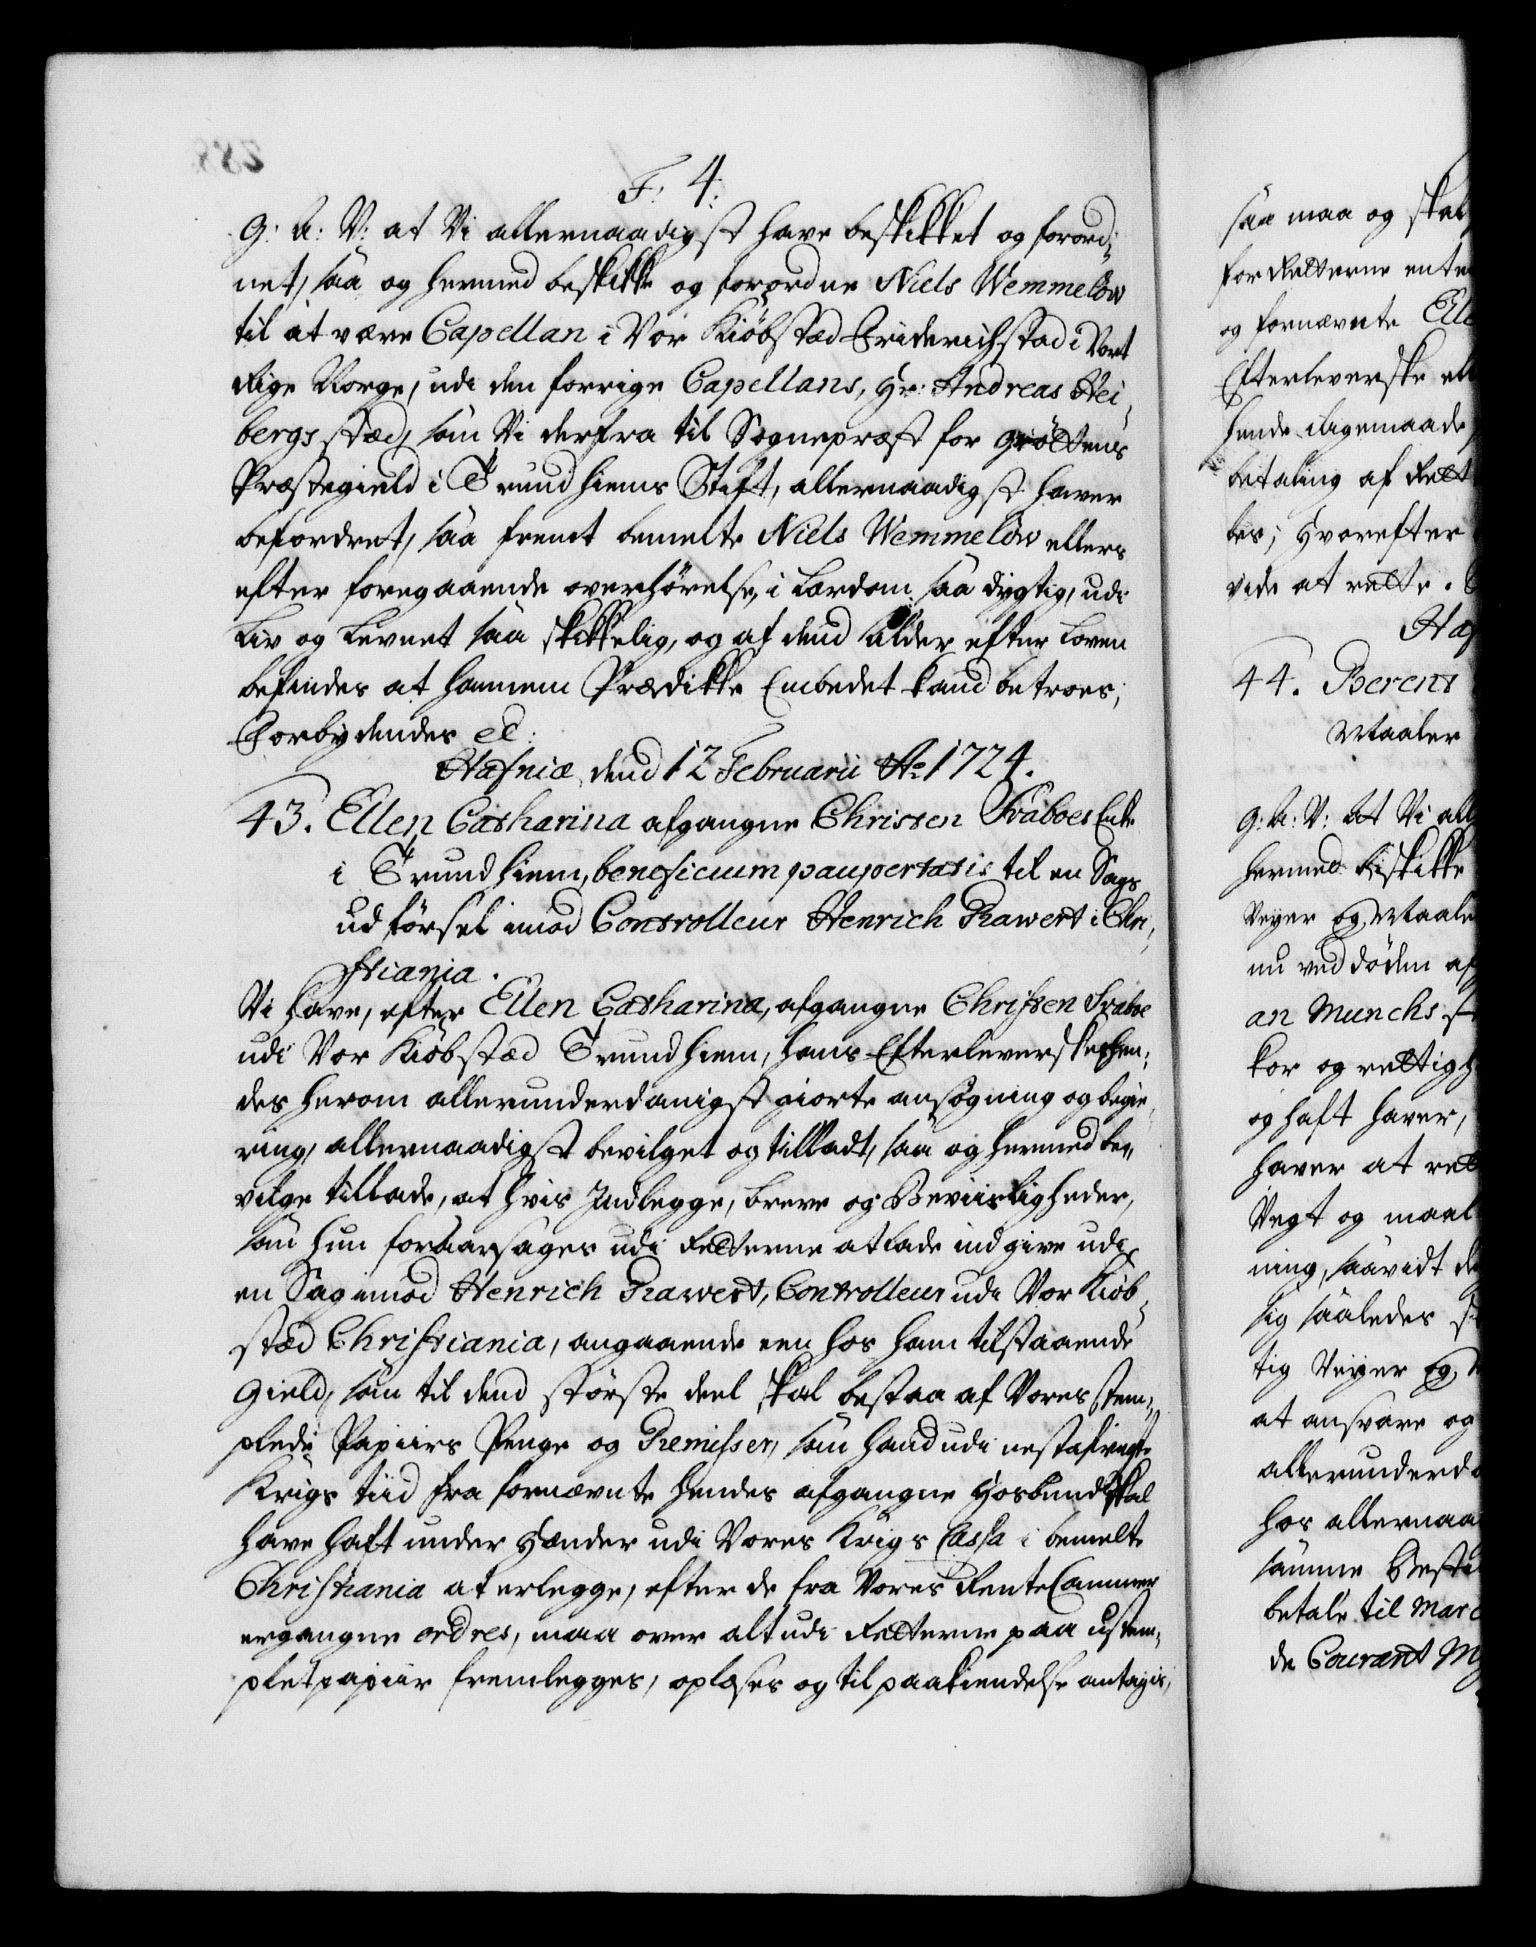 F: 4:
G: A: V: at Vi allernaadigst have beskikket og forord-
net, saa og hermed beskikke og forordne Niels Wemmelöw
til at være Capellan i Vor Kiöbstæd Friderichstad i Vort
Rige Norge, udi den forrige Capellans, Hr: Andreas Hei-
bergs stæd, som Vi derfra til Sognepræst for Gröttens
Præstegield i Trundhiems Stift, allernaadigst haver
befordret, saa fremt bemelte Niels Wemmelöw ellers
efter foregaaende overhörelse, i Lærdom saa dygtig, udi
Liv og Levnet saa skikkelig, og af dend alder efter Loven
befindes at hannem Prædikke Embedet kand betroes;
Forbydendes etc:
Hafniæ dend 12 Februarii Ao 1724.
43. Ellen Catharina afgangne Christen Fraboes Enke
i Trundhiem, beneficium paupertatis til en Sags
udförsel imod Controlleur Henrich Rawert i Chri-
stiania.
Vi have, efter Ellen Catharina, afgangne Christen Fraboe
udi Vor Kiöbstæd Trundhiem, hans Efterleverskes hen-
des herom allerunderdanigst giorte ansögning og begie-
ring, allernaadigst bevilget og tilladt, saa og hermed be-
vilge tillade, at hvis Indlegge, breve og Beviisligheder,
som hun foraarsages udi Retterne at lade indgive udi
en Sag imod Henrich Rawert, Controlleur udi Vor Kiöb-
stæd Christiania, angaaende een hos ham tilstaaende
Gield, som til dend störste deel skal bestaa af Vores stem-
plede Papiirs Penge og Remisser, som hand udi nestafvigte
Krigs tiid fra fornævnte hendes afgangne Hosbund skal
have haft under Hænder udi Vores Krigs Cassa i bemelte
Christiania at erlegge, efter de fra Vores Rente Cammer
ergangne ordres, maa over alt udi Retterne paa ustem-
plet papiir fremlegges, oplæses og til paakiendelse antagis,
saa maa og skal
for Retterne
og fornævnte
Efterleverske
hende ligemaade
betaling af
hvorefter
vide at rette.
44. Berent
Maaler
G: A: V: At Vi
hermed beskikke
Veyer og
nu ved döden
an Munchs
kor og
og haft haver,
haver at
Vegt og maal
ning, saavidt
sig saaledes
tig Veyer og
at ansvare og
hos
samme
betale til
de Courant